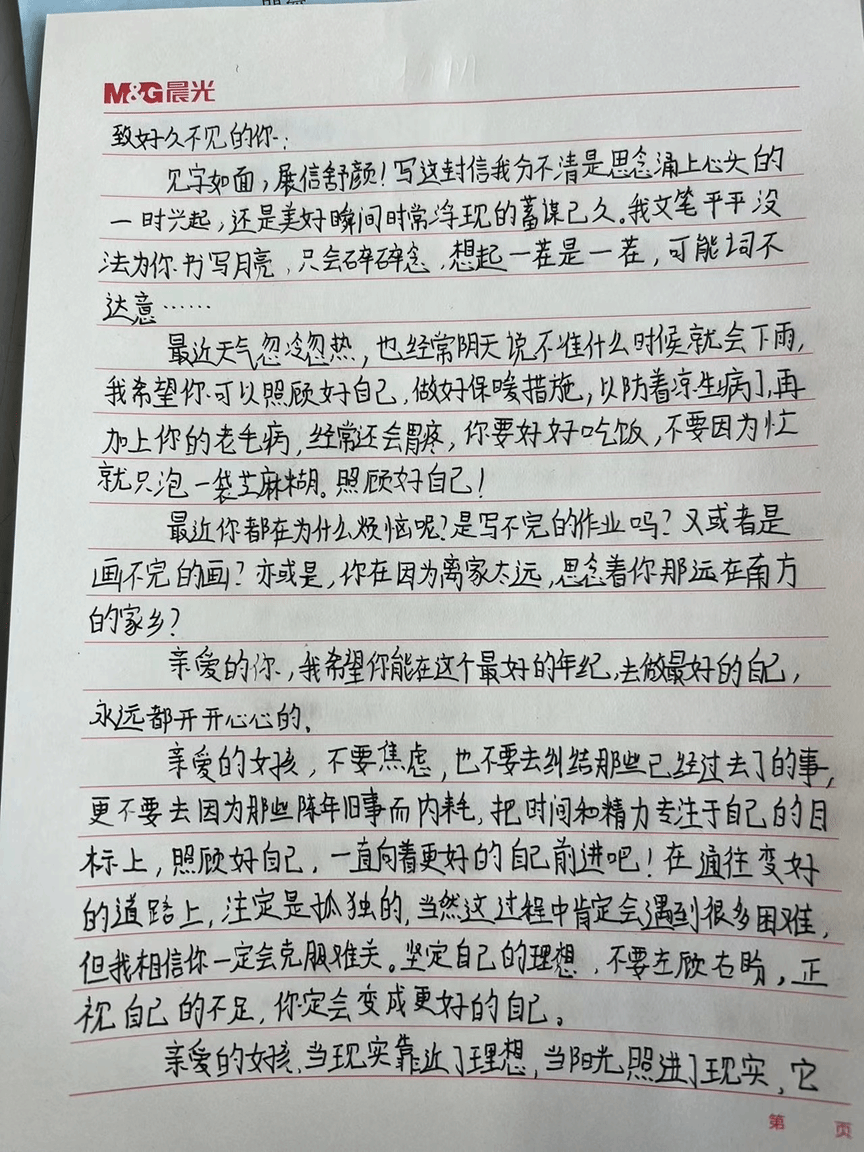 M&G晨光
致好久不见的你:
见字如面,展信舒颜!写这封信我分不清是思念涌上心头的
一时兴起,还是美好瞬间时常浮现的蓄谋已久。我文笔平平没
法为你书写月亮,只会碎碎念,想起一茬是一茬,可能词不
达意……
最近天气忽冷忽热,也经常阴天说不准什么时候就会下雨,
我希望你可以照顾好自己,做好保暖措施,以防着凉生病了,再
加上你的老毛病,经常还会胃疼,你要好好吃饭,不要因为忙
就只泡一袋芝麻糊。照顾好自己!
最近你都在为什么烦恼呢?是写不完的作业吗?又或者是
画不完的画?亦或是,你在因为离家太远,思念着你那远在南方
的家乡?
亲爱的你,我希望你能在这个最好的年纪,去做最好的自己,
永远都开开心心的。
亲爱的女孩,不要焦虑,也不要去纠结那些已经过去了的事,
更不要去因为那些陈年旧事而内耗,把时间和精力专注于自己的目
标上,照顾好自己,一直向着更好的自己前进吧!在通往变好
的道路上,注定是孤独的,当然这过程中肯定会遇到很多困难,
但我相信你一定会克服难关。坚定自己的理想,不要左顾右盼,正
视自己的不足,你定会变成更好的自己。
亲爱的女孩,当现实靠近了理想,当阳光照进了现实,它
第 页